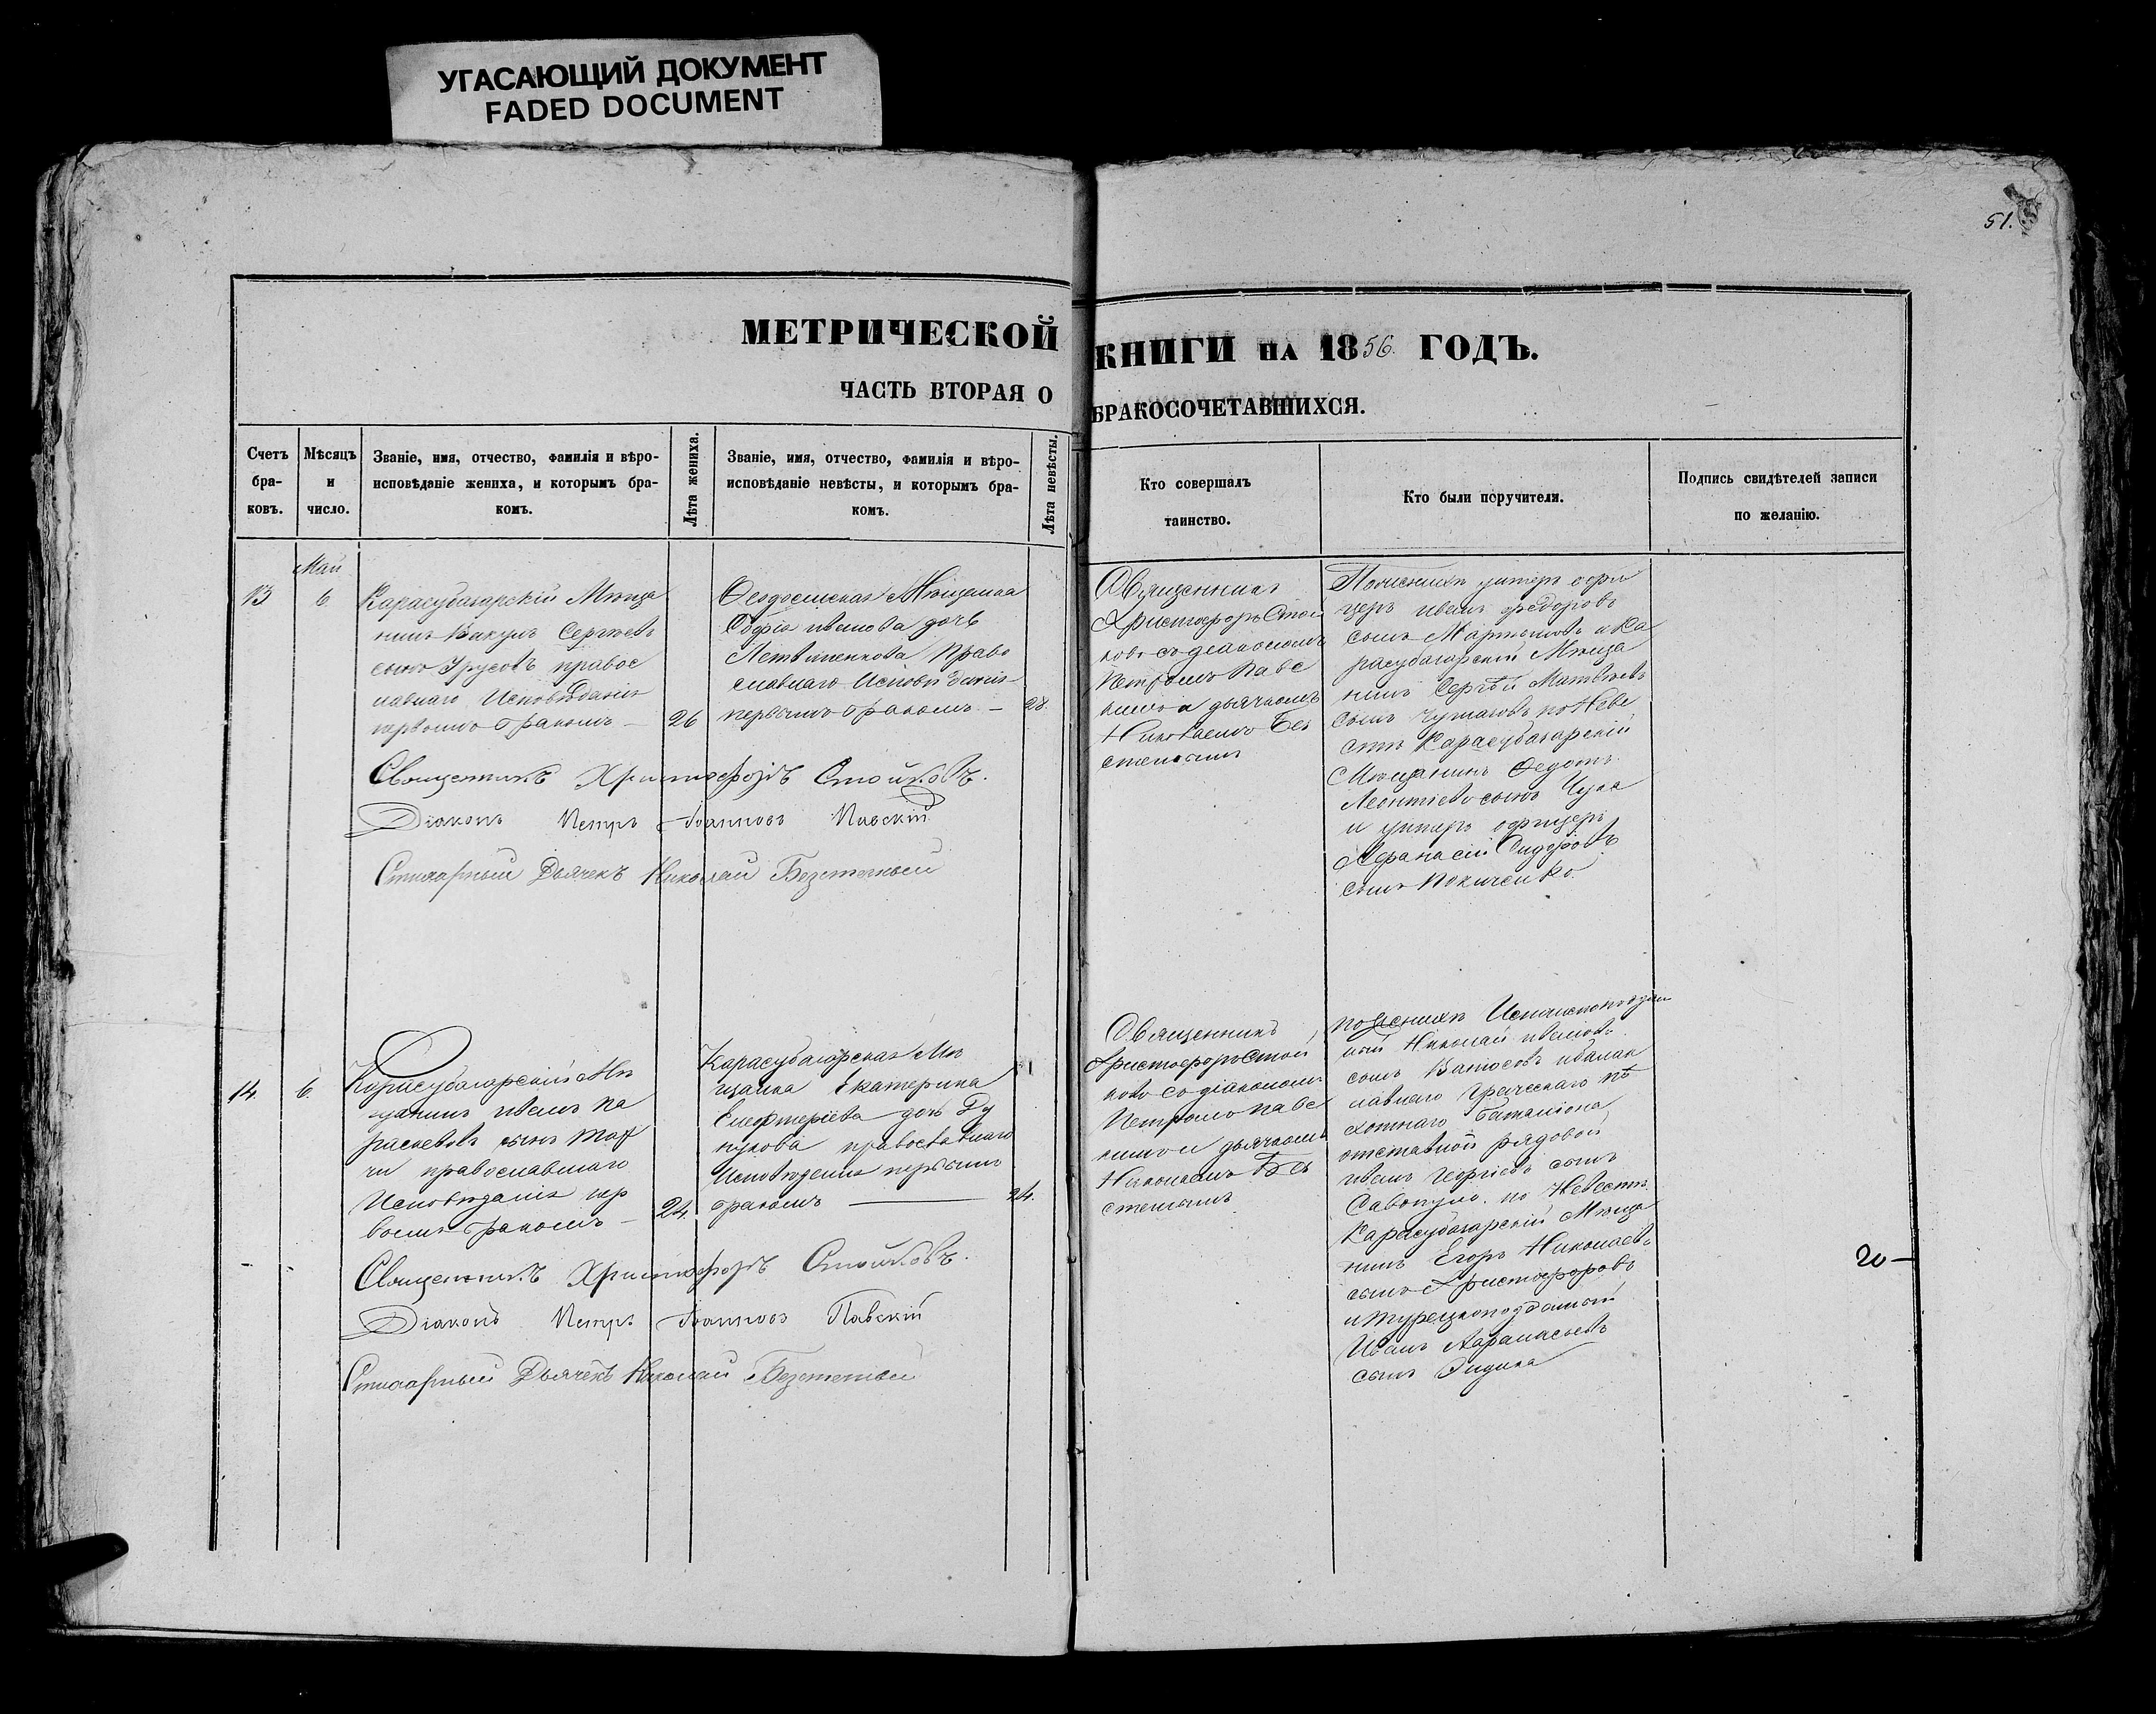 УГАСАЮЩИЙ ДОКУМЕНТ
FADED DOCUMENT
51.
МЕТРИЧЕСКОЙ КНИГИ НА 1856. ГОДЪ.
ЧАСТЬ ВТОРАЯ О БРАКОСОЧЕТАВШИХСЯ.
Счетъ
бра-
ковъ.
Мѣсяцъ
и
число.
Званіе, имя, отчество, фамилія и вѣро-
исповѣданіе жениха, и которымъ бра-
комъ.
Лѣта жениха.
Званіе, имя, отчество, фамилія и вѣро-
исповѣданіе невѣсты, и которымъ бра-
комъ.
Лѣта невѣсты.
Кто совершалъ
таинство.
Кто были поручители.
Подпись свидѣтелей записи
по желанію.
13
Май
6
Карасубазарскій Мѣща
нинъ Вакулъ Сергѣевъ
сынъ Трусовъ правос
лавнаго Исповѣданія
первымъ бракомъ —
26
Ѳеодосійская Мѣщанка
Софія иванова дочь
Православнаго Исповѣданія
первымъ бракомъ —
28.
Священникъ
Христофоръ Стой
ковъ съ діакономъ
Петромъ Павс
кимъ и дьячкомъ
Николаемъ Без
стеннымъ
По женихѣ унтеръ офи
церъ иванъ федоровъ
сынъ Мартыновъ и Ка
расубазарскій Мѣща
нинъ Сергѣй Матвѣевъ
сынъ Чумаковъ по Неве
стѣ Карасубазарскій
Мѣщанинъ Ѳедотъ
Леонтіевъ сынъ
и унтеръ офицеръ
Афанасій Сидоровъ
сынъ
Священникъ Христофоръ Стойковъ.
Діаконъ Петръ Іоанновъ Павскій
Стихарный Дьячекъ Николай Безстенный
14.
6.
Карасубазарскій Мѣ
щанинъ иванъ Па
раскевовъ сынъ
православнаго
Исповѣданія пер
вымъ бракомъ —
24.
Карасубазарская Мѣ
щанка Екатерина
Елефтеріева дочь
православнаго
Исповѣданія первымъ
бракомъ —
24.
Священникъ
Христофоръ Стой
ковъ съ діакономъ
Петромъ Павс
кимъ и дьячкомъ
Николаемъ Без
стеннымъ
по женихѣ
Николай ивановъ
сынъ и балак
лавнаго Греческаго пѣ
хотнаго баталіона
отставной рядовой
иванъ Георгіевъ сынъ
Савопуло. по Невестѣ
Карасубазарскій Мѣща
нинъ Егоръ Николаевъ
сынъ Христофоровъ
и турецкоподданный
Иванъ Афанасьевъ
сынъ
20 —
Священникъ Христофоръ Стойковъ.
Діаконъ Петръ Іоанновъ Павскій
Стихарный Дьячекъ Николай Безстенный